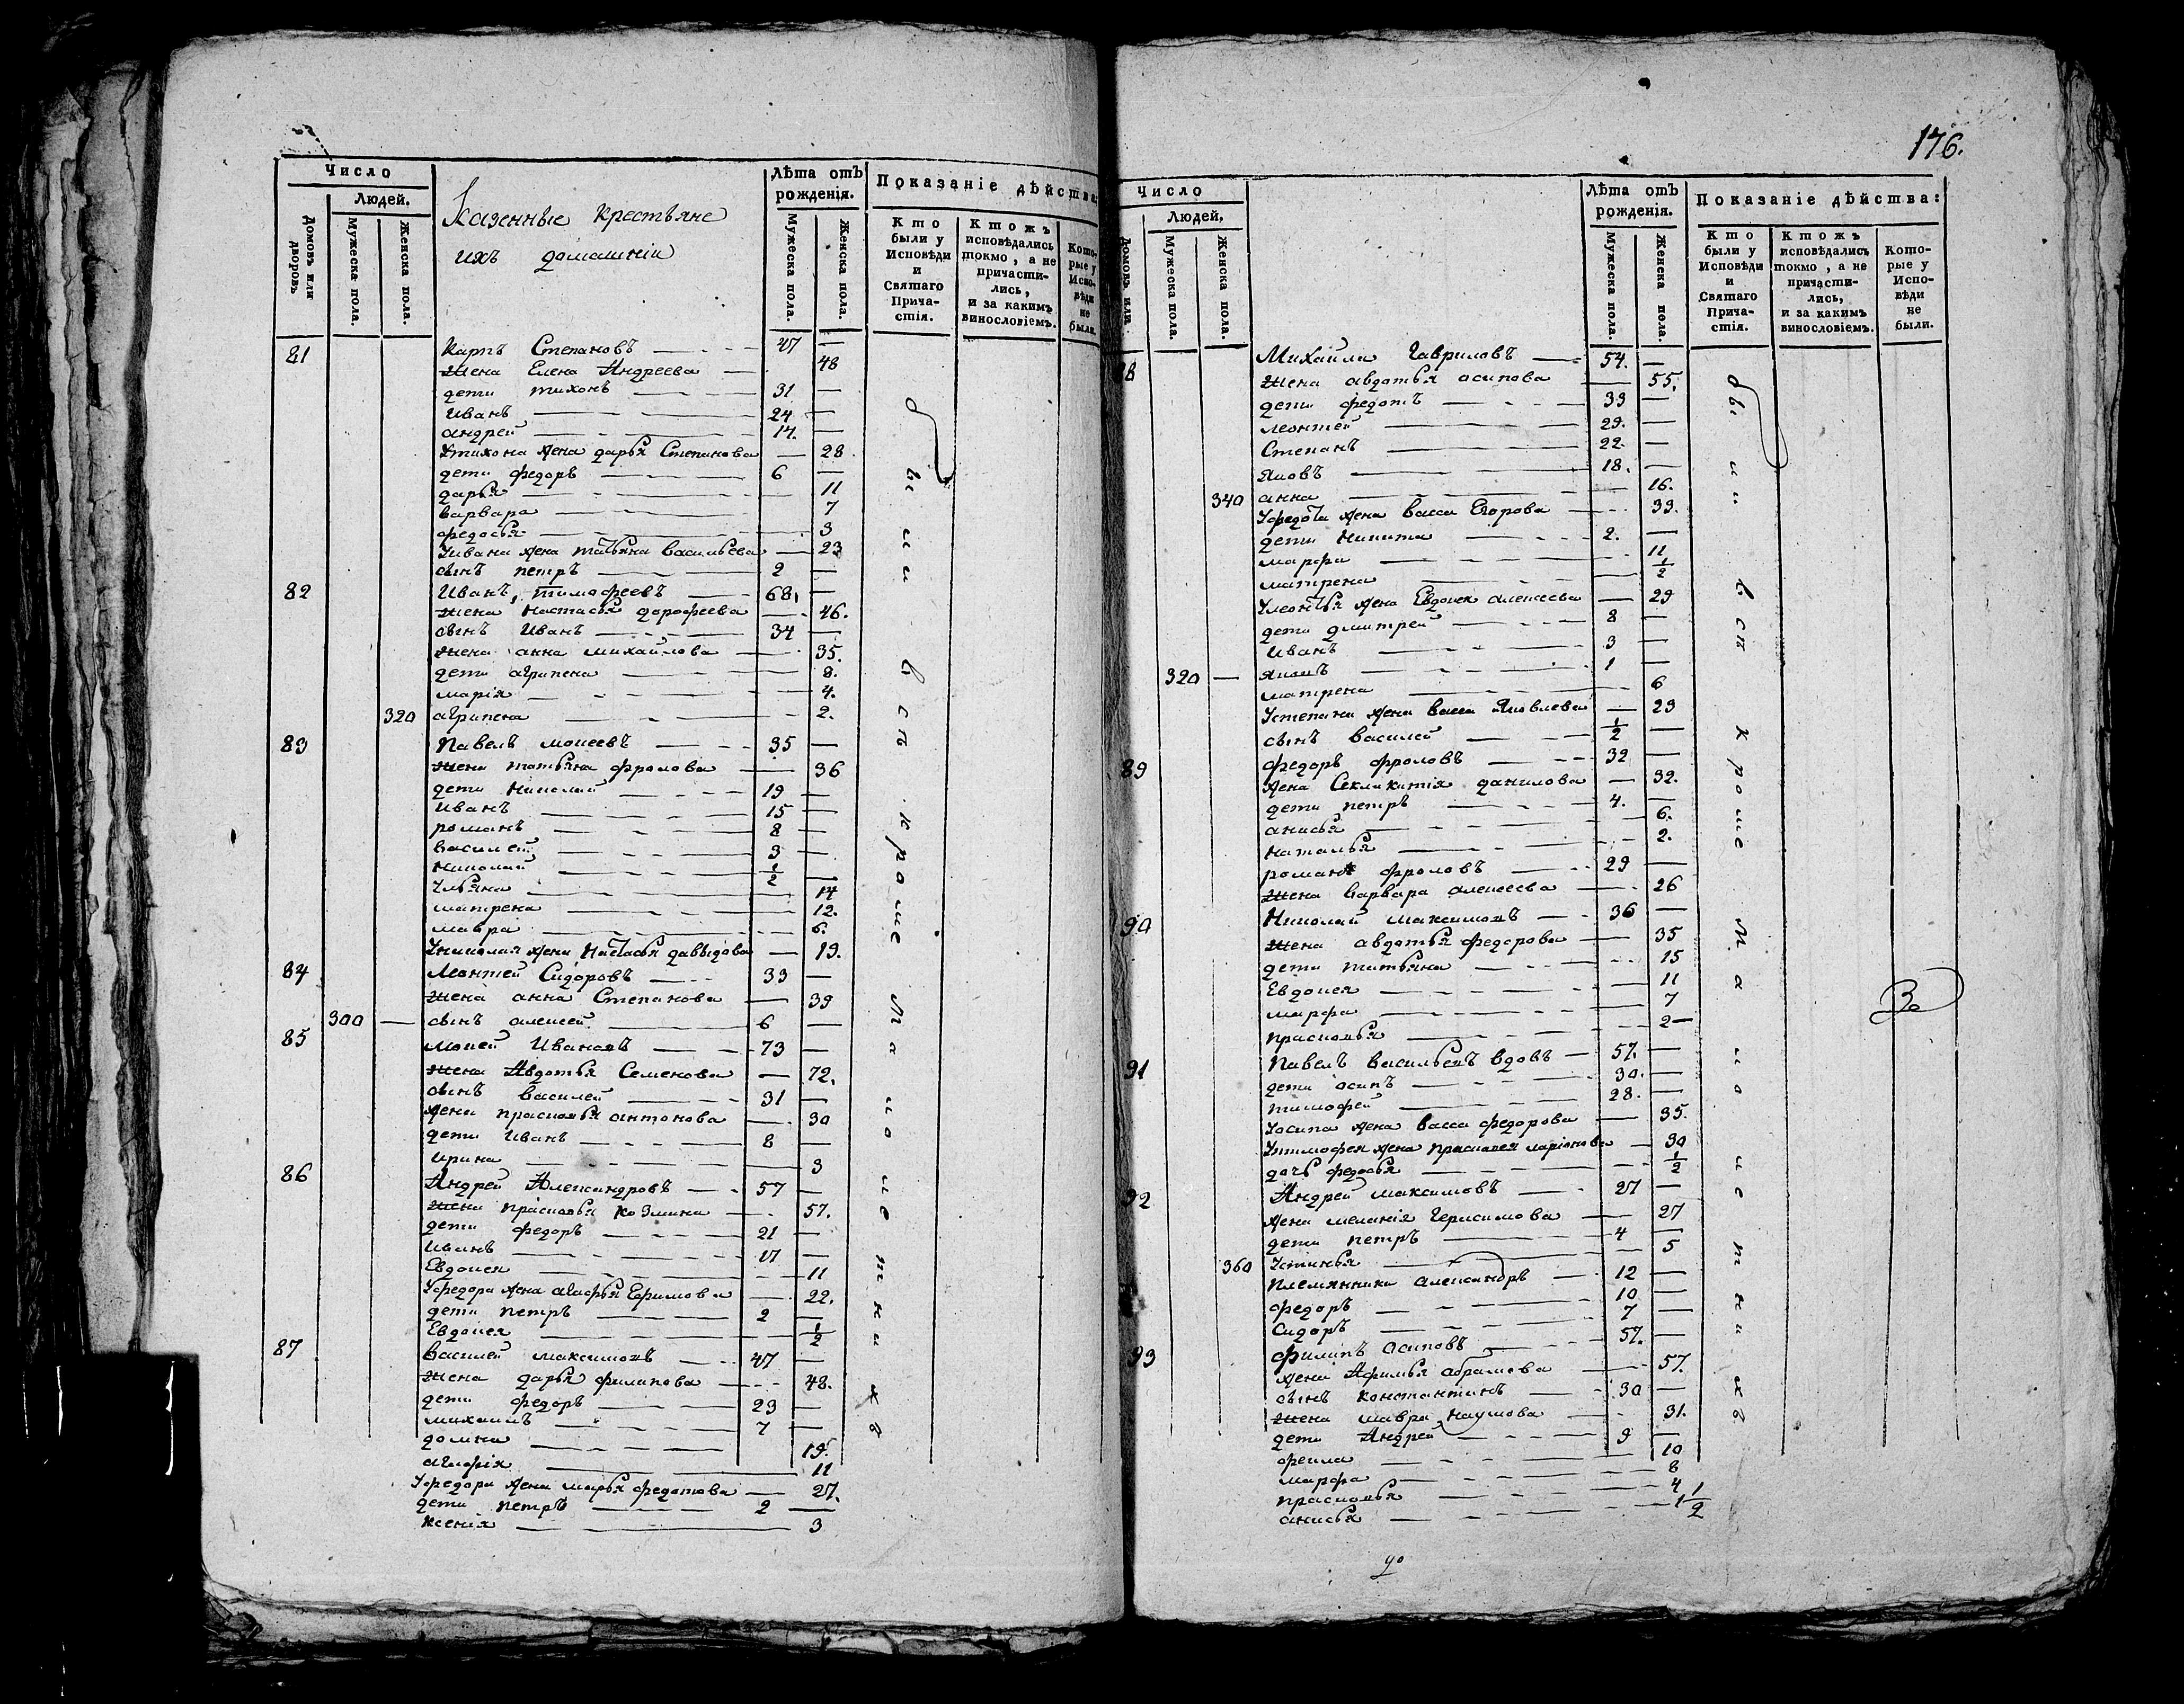 Число
Людей.
Домовъ или дворовъ
Мужеска пола.
Женска пола.
Казенные крестьяне
ихъ домашнии
Лѣта отъ рожденія.
Мужеска пола.
Женска пола.
Показаніе дѣйства:
Кто были у Исповѣди и Святаго Причастія.
Ктожъ исповѣдались токмо, а не причастились, и за какимъ винословіемъ.
Которые у Исповѣди не были.
81 Карпъ Степановъ 47
жена Елена Андреева 48
дети тихонъ 31
Иванъ 24
андрей 17.
У тихона жена дарья Степанова 28
дети федоръ 6
дарья 11
варвара 7
федосья 3
У ивана жена татьяна васильева 23
сынъ петръ 2
82 Иванъ, тимофеевъ 68,
жена настасья дорофеева 46.
сынъ Иванъ 34
жена анна михайлова 35.
дети агрипена 8.
марія 4.
320 агрипена 2.
83 Павелъ мокеевъ 35
жена татьяна фролова 36
дети Николай 19
Иванъ 15
романъ 8
василей 3
Николай 1/2
Ульяна 14
матрена 12.
мавра 6.
У николая жена Настасья давыдова 19.
84 Леонтей Сидоровъ 33
жена анна Степанова 39
300 сынъ алексей 6
85 мокей Ивановъ 73
жена Авдотья Семенова 72.
сынъ василей 31
жена прасковья антонова 30
дети Иванъ 8
Ирина 3
86 Андрей Александровъ 57
жена прасковья козмина 57.
дети федоръ 21
Иванъ 17
Евдокея 11
У федора жена агафья Ефимова 22.
дети петръ 2
Евдокея 1/2
87 василей максимовъ 47
жена дарья филипова 48.
дети федоръ 23
михаилъ 7
домна 19.
агафія 11
У федора жена марья федотова 27.
дети петръ 2
ксенія 3
были в сп кроме
176.
Число
Людей.
Домовъ или
Мужеска пола.
Женска пола.
Лѣта отъ рожденія.
Мужеска пола.
Женска пола.
Показаніе дѣйства:
Кто были у Исповѣди и Святаго Причастія.
Ктожъ исповѣдались токмо, а не причастились, и за какимъ винословіемъ.
Которые у Исповѣди не были.
88 Михайла Гавриловъ 54.
жена авдотья осипова 55.
дети федотъ 33
леонтей 29.
Степанъ 22.
Яковъ 18.
340 анна 16.
У федота жена васса Егорова 33.
дети Никита 2.
марфа 11
матрена 1/2
У леонтья жена Евдокея алексеева 29
дети дмитрей 8
Иванъ 3
320 Якимъ 1
матрена 6
У степана жена васса Яковлева 23
сынъ василей 1/2
89 федоръ фроловъ 32
жена Секликитія данилова 32.
дети петръ 4.
анисья 6.
наталья 2.
романъ фроловъ 29
жена варвара алексеева 26
90 Николай максимовъ 36
жена авдотья федорова 35
дети татьяна 15
Евдокея 11
марфа 7
прасковья 2
91 Павелъ васильевъ вдовъ 57.
дети осипъ 30.
тимофей 28.
У осипа жена васса федорова 35.
У тимофея жена прасковея ларіонова 30
дочь федосья 1/2
92 Андрей максимовъ 27
жена меланія Герасимова 27
дети петръ 4
360 Устинья 5
племянники александръ 12
федоръ 10
Сидоръ 7
93 филипъ осиповъ 57.
жена Афимья абрамова 57.
сынъ константинъ 30
жена мавра наумова 31.
дети Андрей 9
фекла 10
марфа 8
прасковья 4
анисья 1 1/2
были в сп кроме